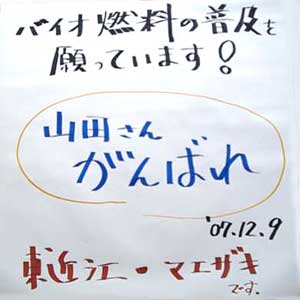 バイオ燃料の普及を
願っています！
山田さん
がんばれ
'07.12.9
東近江・マエザキ
です.